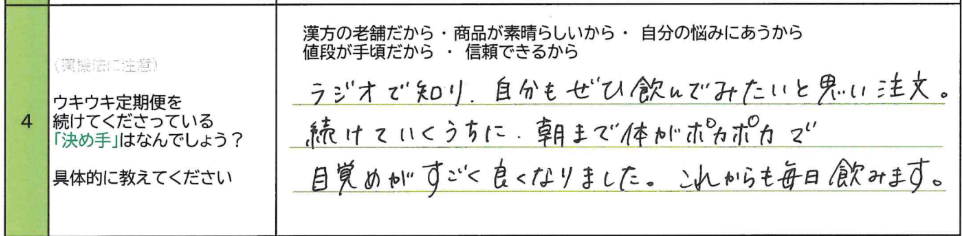 (薬機法に注意)
4
ウキウキ定期便を
続けてくださっている
「決め手」はなんでしょう？
具体的に教えてください
漢方の老舗だから・商品が素晴らしいから・ 自分の悩みにあうから
値段が手頃だから ・ 信頼できるから
ラジオで知り、自分もぜひ飲んでみたいと思い注文。
続けていくうちに、朝まで体がポカポカで
目覚めがすごく良くなりました。これからも毎日飲みます。